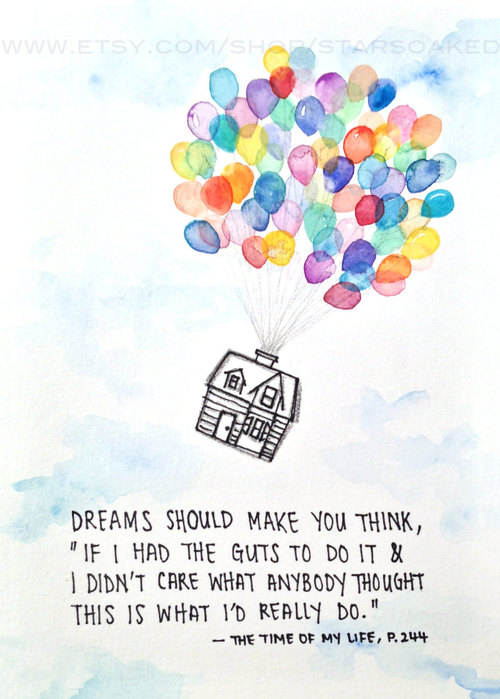 WWW.ETSY.COM/SHOP/STARSOAKED
DREAMS SHOULD MAKE YOU THINK,
"IF I HAD THE GUTS TO DO IT &
I DIDN'T CARE WHAT ANYBODY THOUGHT
THIS IS WHAT I'D REALLY DO."
— THE TIME OF MY LIFE, P.244